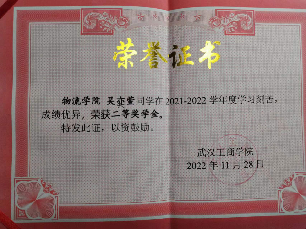 荣誉证书
物流学院 吴亦萱同学在2021-2022学年度学习刻苦，
成绩优异，荣获二等奖学金。
特发此证，以资鼓励。
武汉工商学院
2022年11月28日